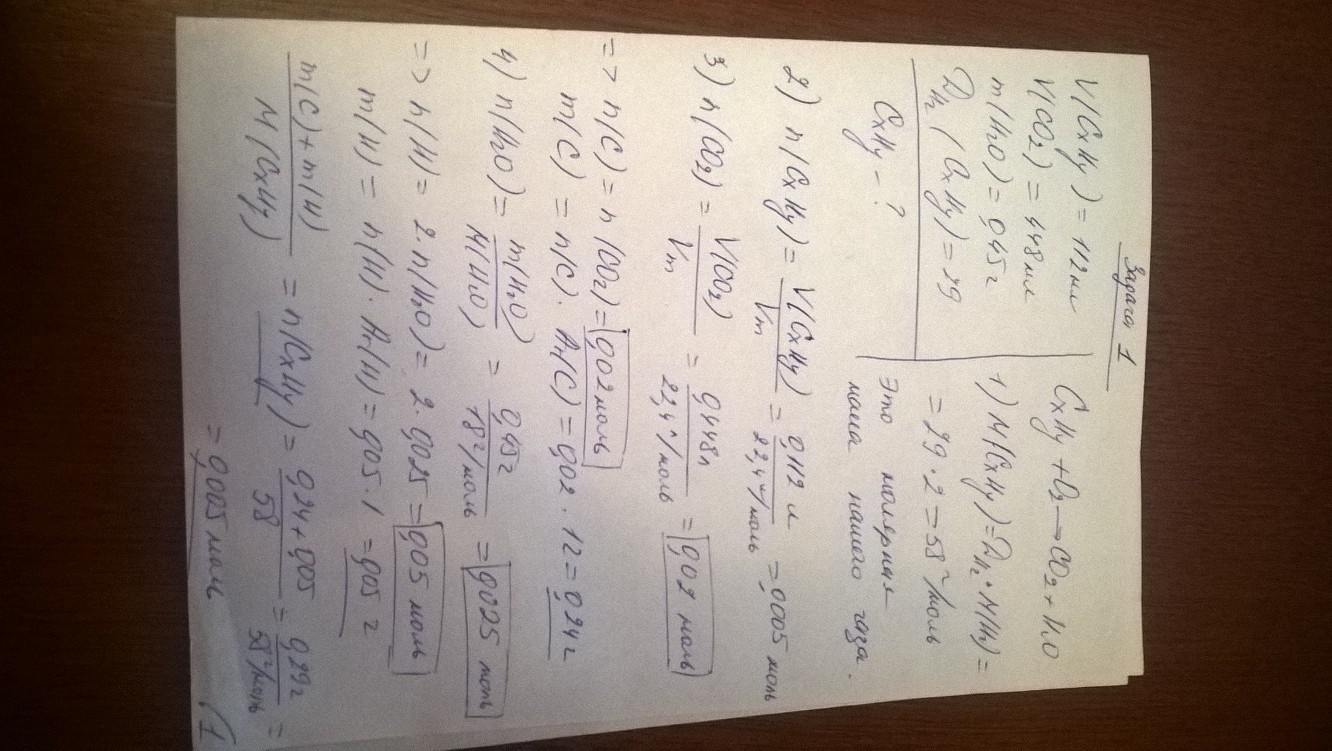 Задача 1
V(CxHy) = 112 мл
V(CO2) = 448 мл
m(H2O) = 0,45 г
DH2 (CxHy) = 29
CxHy - ?
CxHy + O2 → CO2 + H2O
1) M(CxHy) = DH2 · M(H2) =
= 29 · 2 = 58 г/моль
Это молярная
масса нашего газа.
2) n(CxHy) = V(CxHy) / Vm = 0,112 л / 22,4 л/моль = 0,005 моль
3) n(CO2) = V(CO2) / Vm = 0,448 л / 22,4 л/моль = 0,02 моль
=> n(C) = n(CO2) = 0,02 моль
m(C) = n(C) · Ar(C) = 0,02 · 12 = 0,24 г
4) n(H2O) = m(H2O) / M(H2O) = 0,45 г / 18 г/моль = 0,025 моль
=> n(H) = 2 · n(H2O) = 2 · 0,025 = 0,05 моль
m(H) = n(H) · Ar(H) = 0,05 · 1 = 0,05 г
m(C) + m(H) / M(CxHy) = n(CxHy) = 0,24 + 0,05 / 58 = 0,29 г / 58 г/моль =
= 0,005 моль
(1